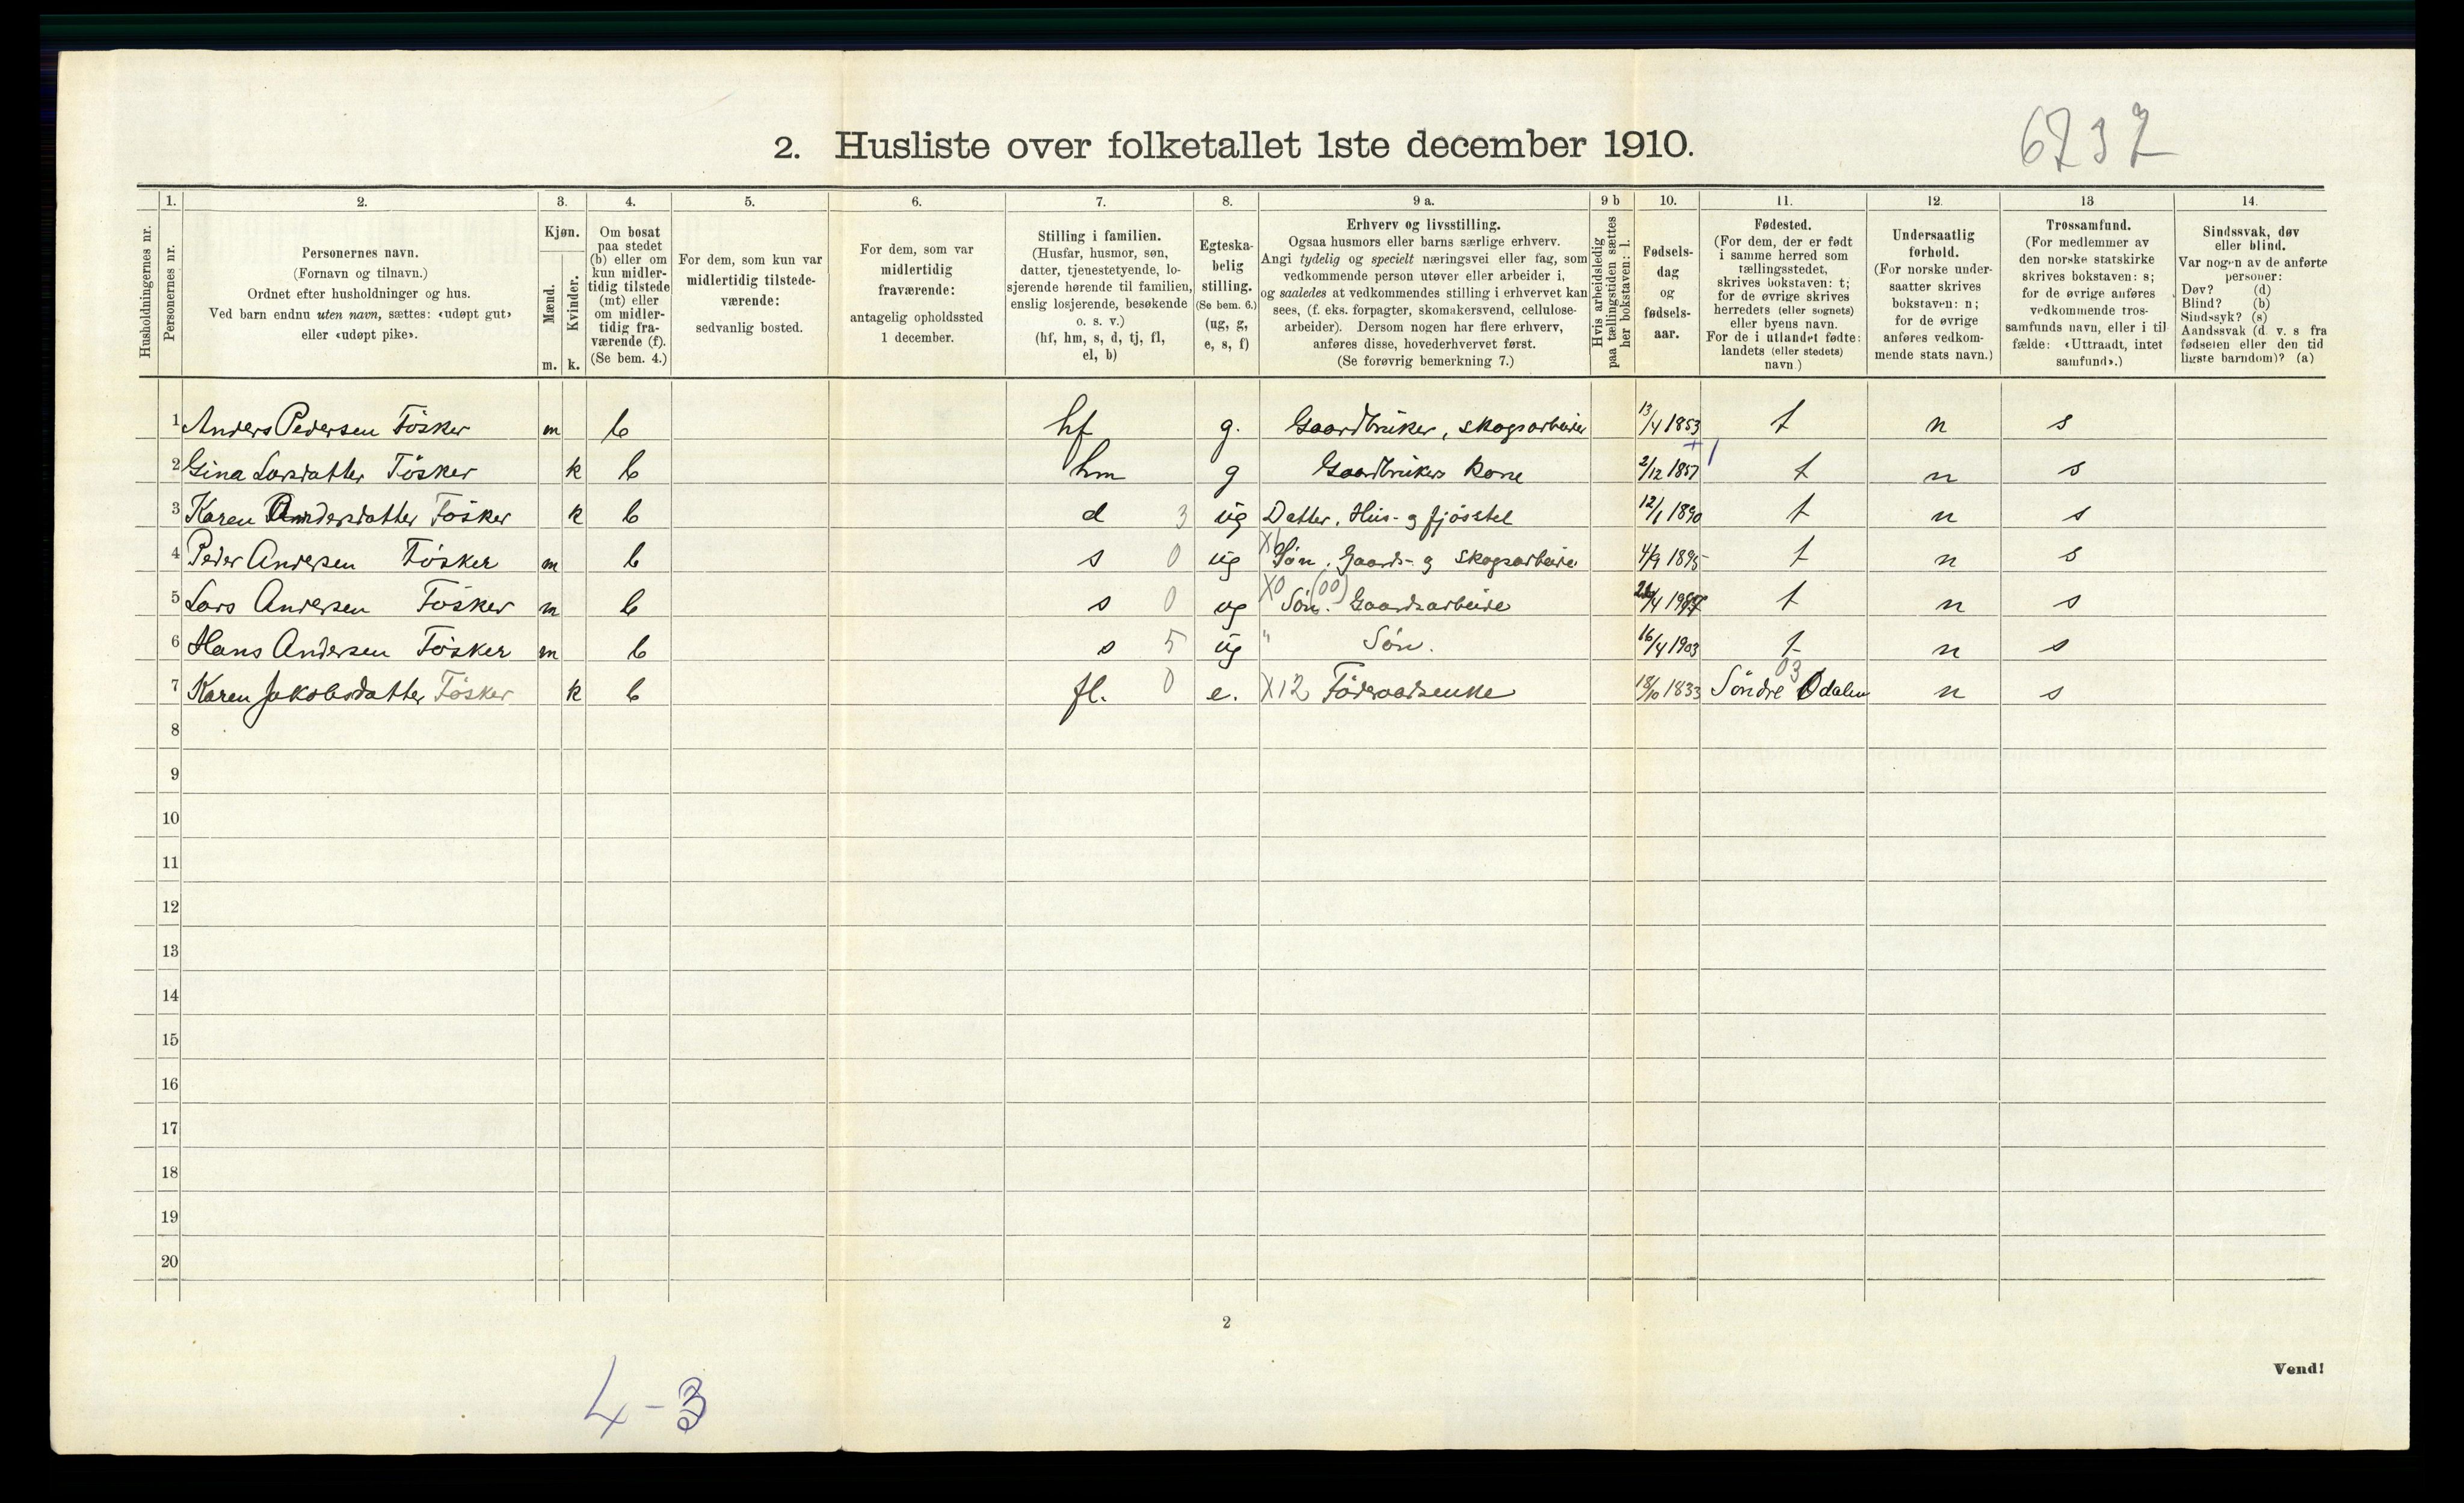 6737
2. Husliste over folketallet 1ste december 1910.
Husholdningernes nr.
1. Personernes nr.
2. Personernes navn. (Fornavn og tilnavn.) Ordnet efter husholdninger og hus. Ved barn endnu uten navn, sættes: «udøpt gut» eller «udøpt pike».
3. Kjøn. Mænd. m. Kvinder. k.
4. Om bosat paa stedet (b) eller om kun midlertidig tilstede (mt) eller om midlertidig fraværende (f). (Se bem. 4.)
5. For dem, som kun var midlertidig tilstedeværende: sedvanlig bosted.
6. For dem, som var midlertidig fraværende: antagelig opholdssted 1 december.
7. Stilling i familien. (Husfar, husmor, søn, datter, tjenestetyende, losjerende hørende til familien, enslig losjerende, besøkende o. s. v.) (hf, hm, s, d, tj, fl, el, b)
8. Egteskabelig stilling. (Se bem. 6.) (ug, g, e, s, f)
9 a. Erhverv og livsstilling. Ogsaa husmors eller barns særlige erhverv. Angi tydelig og specielt næringsvei eller fag, som vedkommende person utøver eller arbeider i, og saaledes at vedkommendes stilling i erhvervet kan sees, (f. eks. forpagter, skomakersvend, cellulosearbeider). Dersom nogen har flere erhverv, anføres disse, hovederhvervet først. (Se forøvrig bemerkning 7.)
9 b Hvis arbeidsledig paa tællingstiden sættes her bokstaven: l.
10. Fødselsdag og fødselsaar.
11. Fødested. (For dem, der er født i samme herred som tællingsstedet, skrives bokstaven: t; for de øvrige skrives herredets (eller sognets) eller byens navn. For de i utlandet fødte: landets (eller stedets) navn.)
12. Undersaatlig forhold. (For norske undersaatter skrives bokstaven: n; for de øvrige anføres vedkommende stats navn.)
13 Trossamfund. (For medlemmer av den norske statskirke skrives bokstaven: s; for de øvrige anføres vedkommende trossamfunds navn, eller i tilfælde: «Uttraadt, intet samfund».)
14. Sindssvak, døv eller blind. Var nogen av de anførte personer: Døv? (d) Blind? (b) Sindssyk? (s) Aandssvak (d. v. s. fra fødselen eller den tidligste barndom)? (a)
1 Anders Pedersen Fösker m b hf g. Gaardbruker, skogsarbeider 13/4 1853 t n s
2 Gina Larsdatter Fösker k b hm g Gaardbrukers kone 2/12 1857 t n s
3 Karen Andersdatter Fösker k b d 3 ug Datter. Hus- og fjösstel 12/1 1890 t n s
4 Peder Andersen Fösker m b s 0 ug Sön. Gaards- og skogsarbeide 4/9 1895 t n s
5 Lars Andersen Fösker m b s 0 ug X0 (00) Sön. Gaardsarbeide t n s
6 Hans Andersen Fösker m b s 5 ug " Sön. 16/4 1903 t n s
7 Karen Jakobsdatter Fösker k b fl. 0 e. X12 Föderaadsenke 18/10 1833 03 Söndre Odalen n s
8
9
10
11
12
13
14
15
16
17
18
19
20
2
Vend!
4-3